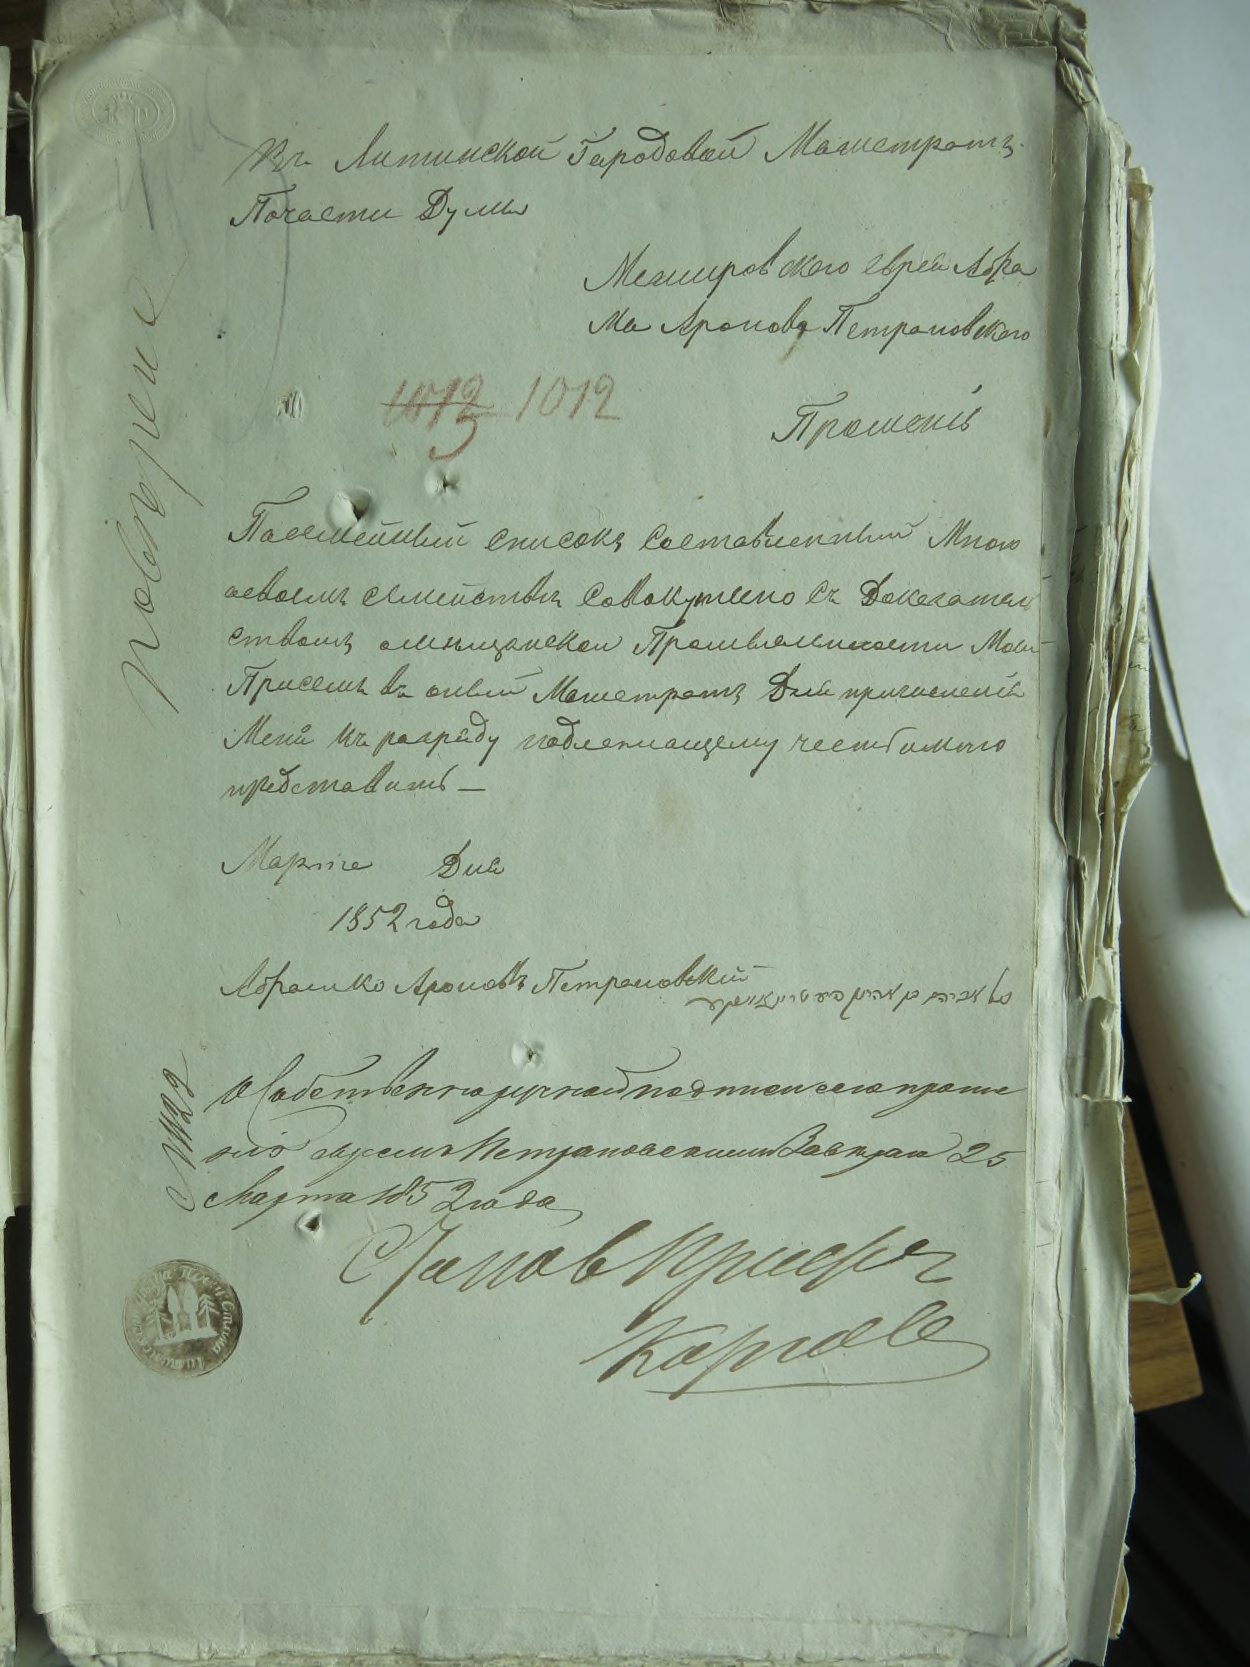 Въ Литинской Городовой Магистратъ
Почасти Думы
Межировского еврея Абра
ма Аронова Петрановского
1012 1012
Прошеніе
Посемейный списокъ Составленный Мною
освоемъ семействѣ Совокупно Съ Доказатель
ствомъ омѣщанской Промышлености Моей
Присемъ въ оный Магистратъ Для причисленія
Меня къ разряду подлежащему честь имею
представить —
Марта Дня
1852 года
Абрамко Ароновъ Петрановский
О Собственноручной подписи сего проше
нія евреемъ Петрановскимъ
Марта 1852 года
№ 22